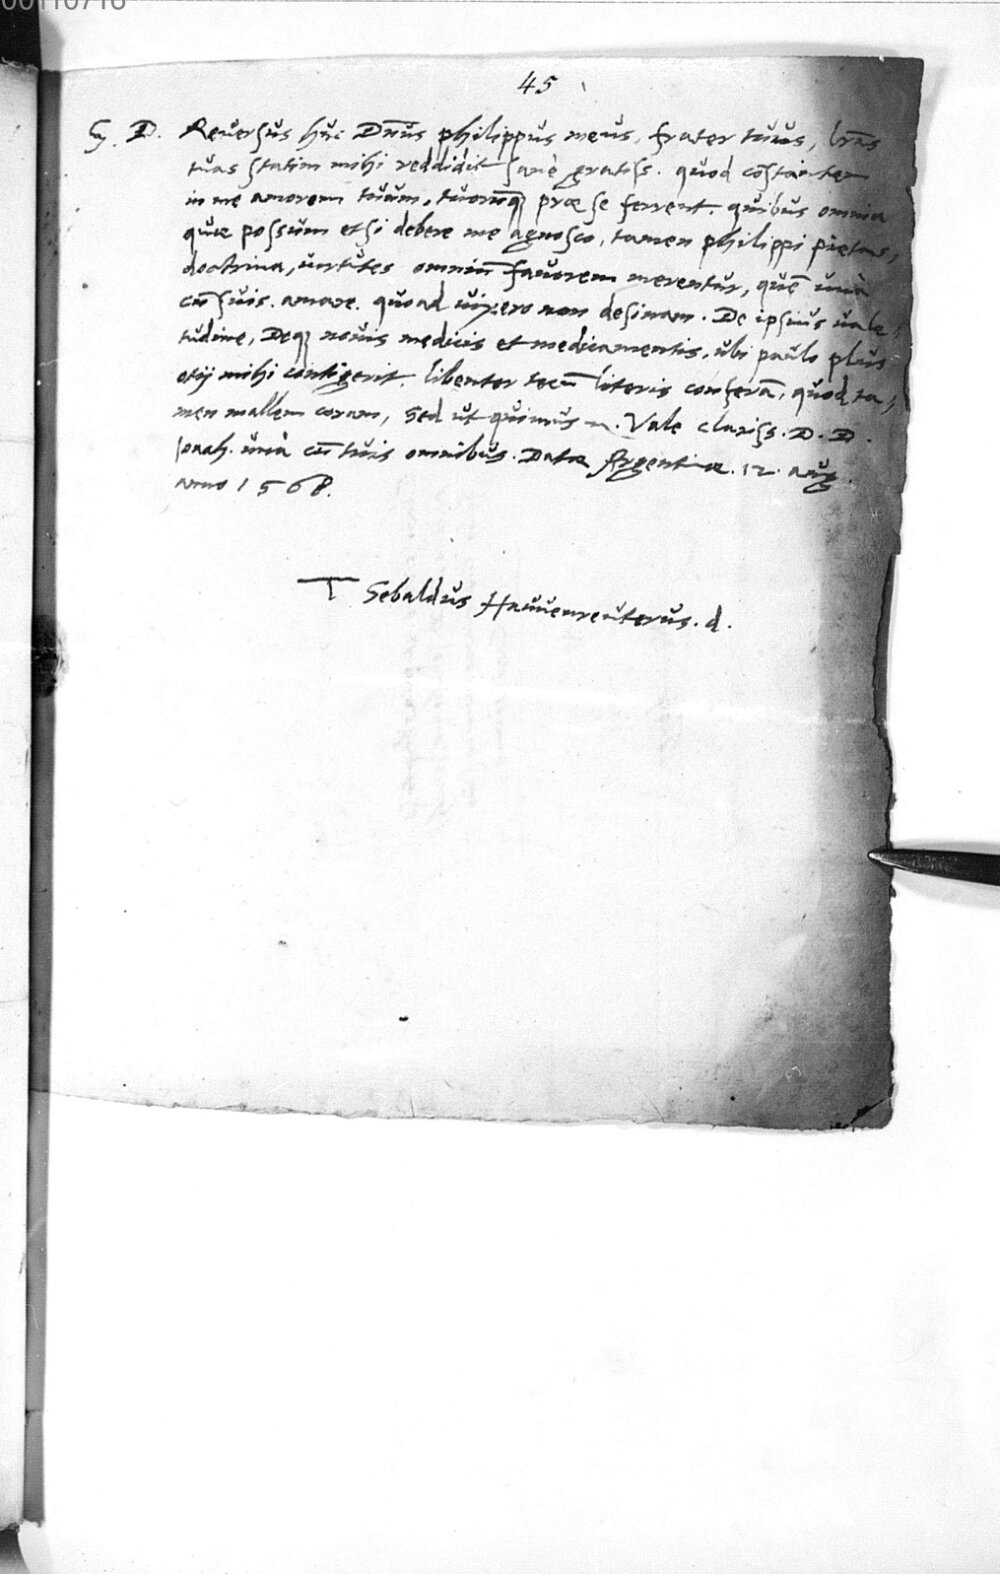 00110718
45
S. D. Reuersus huc Dn̄us philippus meus, frater tuus, lr̄as
tuas statim mihi reddidit sanè gratiss. quod constanter
in me amorem tuum, tuorumq₃ præ se ferrent. quibus omnia
quæ possum etsi debere me agnosco, tamen philippi pietas,
doctrina, uirtutes omniū fauorem merentur, quē unà
cū suis. amare. quoad uixero non desinam. De ipsius uale-
tudine, Deq₃ nouis medicis et medicamentis, ubi paulo plus
otij mihi contigerit. libenter tecū literis conferā, quod ta-
men mallem coram, sed ut quimus. Vale clariss. D. D.
Joach. unà cū tuis omnibus. Datæ Argentinæ. 12. aug.
anno 1568.
T Sebaldus Hauuenreuterus. d.